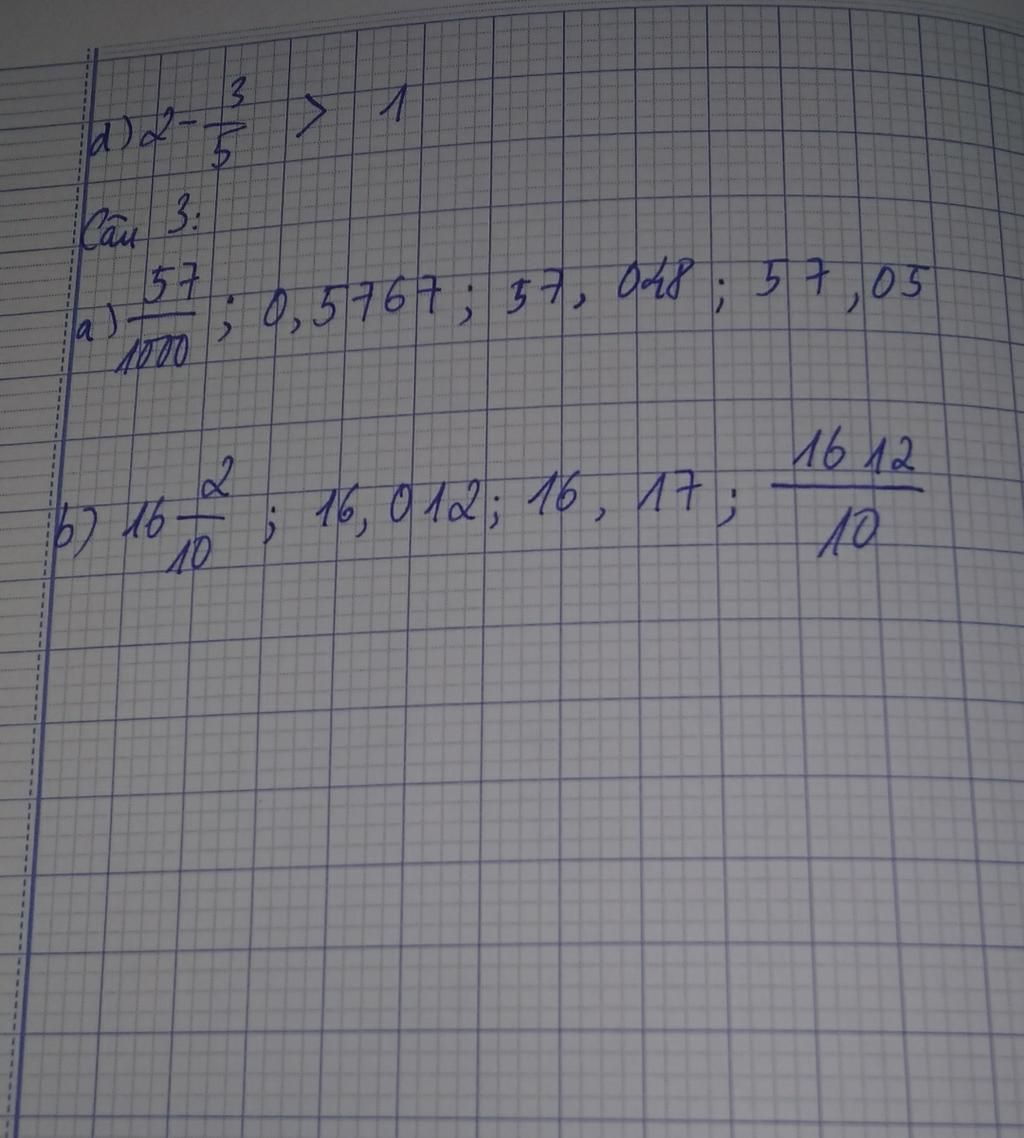 d) 2 - 3/5 > 1
Câu 3:
a) 57/1000 ; 0,5767 ; 57,048 ; 57,05
b) 16 2/10 ; 16,012 ; 16,17 ; 1612/10